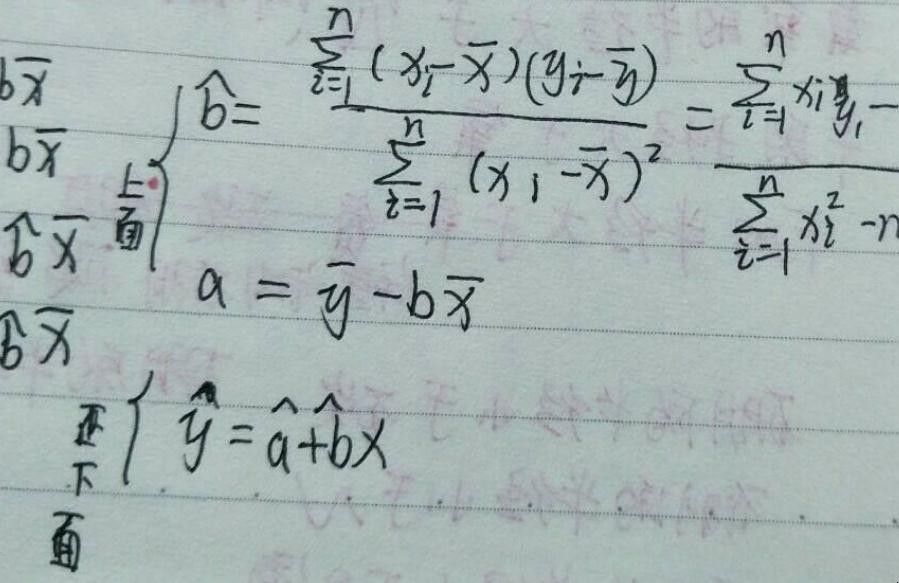 bx̄
bx̄
b̂x̄
b̂x̄
上面 { b̂ = \frac{\sum_{i=1}^{n} (x_i - x̄)(y_i - ȳ)}{\sum_{i=1}^{n} (x_i - x̄)^2} = \frac{\sum_{i=1}^{n} x_i y_i -}{\sum_{i=1}^{n} x_i^2 - n}
a = ȳ - bx̄
下面 { ŷ = â + b̂x